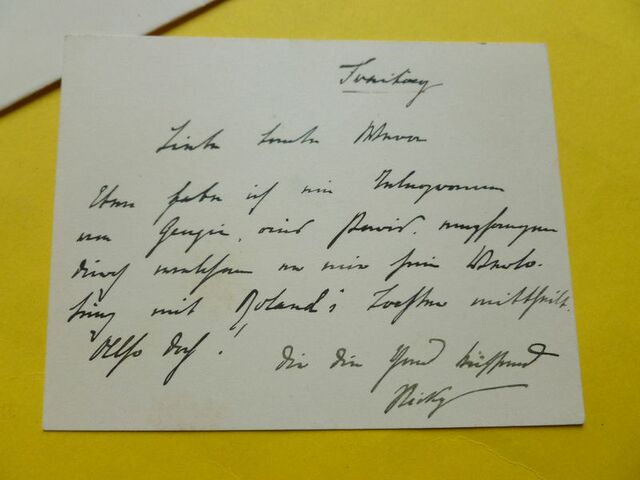 Freitag
Liebe Tante Anna
Eben habe ich ein Telegramm
von Georgie, aus Paris, empfangen
durch welches er mir seine Verlo-
bung mit Roland's Tochter mittheilt.
Also doch!
Dir die Hand küssend
Ricky